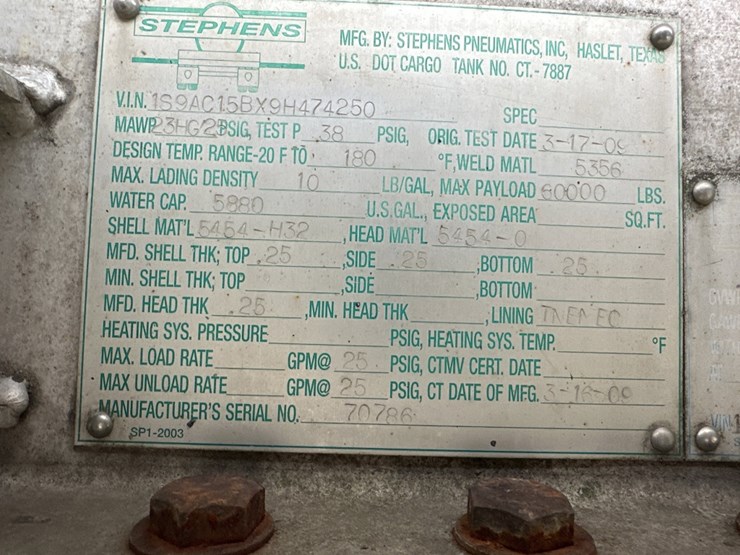 STEPHENS
MFG. BY: STEPHENS PNEUMATICS, INC, HASLET, TEXAS
U.S. DOT CARGO TANK NO. CT.-7887
V.I.N. 1S9AC15BX9H474250 SPEC
MAWP PSIG, TEST P 38 PSIG, ORIG. TEST DATE 3-17-09
DESIGN TEMP. RANGE-20 F TO 180 °F, WELD MATL 5356
MAX. LADING DENSITY 10 LB/GAL, MAX PAYLOAD 60000 LBS.
WATER CAP. 5880 U.S.GAL., EXPOSED AREA SQ.FT.
SHELL MAT'L 5454-H32, HEAD MAT'L 5454-0
MFD. SHELL THK; TOP .25, SIDE .25, BOTTOM .25
MIN. SHELL THK; TOP, SIDE, BOTTOM
MFD. HEAD THK .25, MIN. HEAD THK, LINING TNEMEC
HEATING SYS. PRESSURE PSIG, HEATING SYS. TEMP. °F
MAX. LOAD RATE GPM@ 25 PSIG, CTMV CERT. DATE
MAX UNLOAD RATE GPM@ 25 PSIG, CT DATE OF MFG. 3-16-09
MANUFACTURER'S SERIAL NO. 70786
SP1-2003